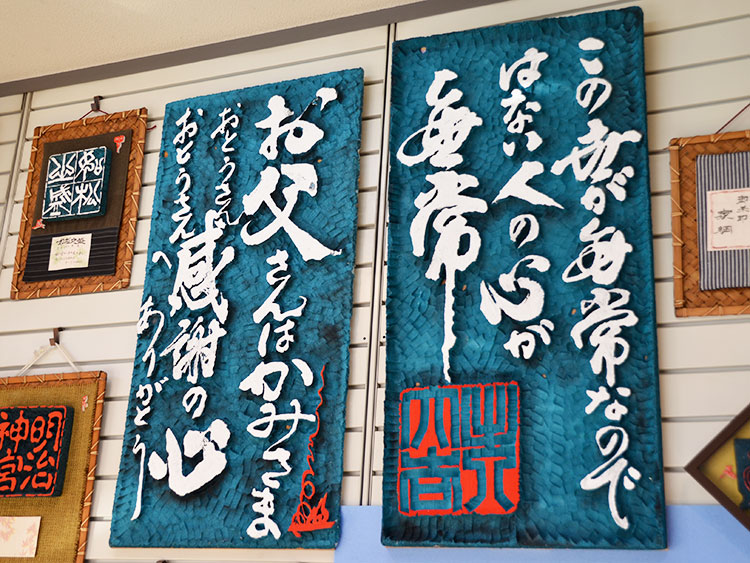 この世が無常なので
はない人の心が
無常
お父さんはかみさま
おとうさん
感謝の心
おとうさんへ
ありがとう
明治
神宮